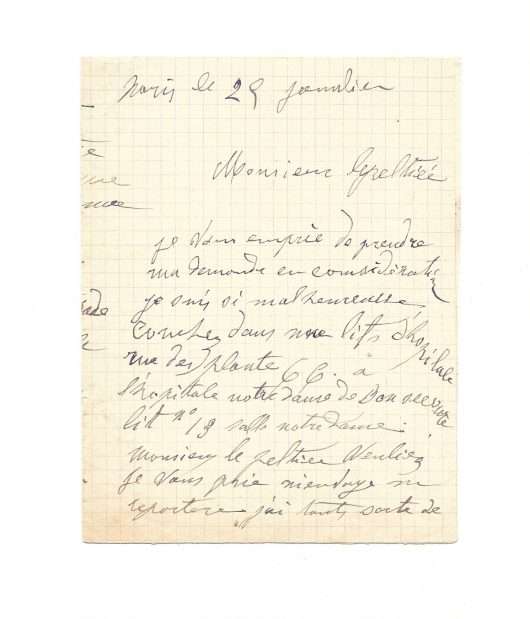 le 29 janvier
Monsieur
je vous emprie de prendre
ma demande en considération
je suis si malheureuse
couchez dans une lits d'hopitale
rue des plante 66 à
l'hopitale notre dame de Bon secoure
lit n° 18 salle notre dame
monsieur le peltier veuliez
je vous prie m'envoye un
j'ai touts sorte de